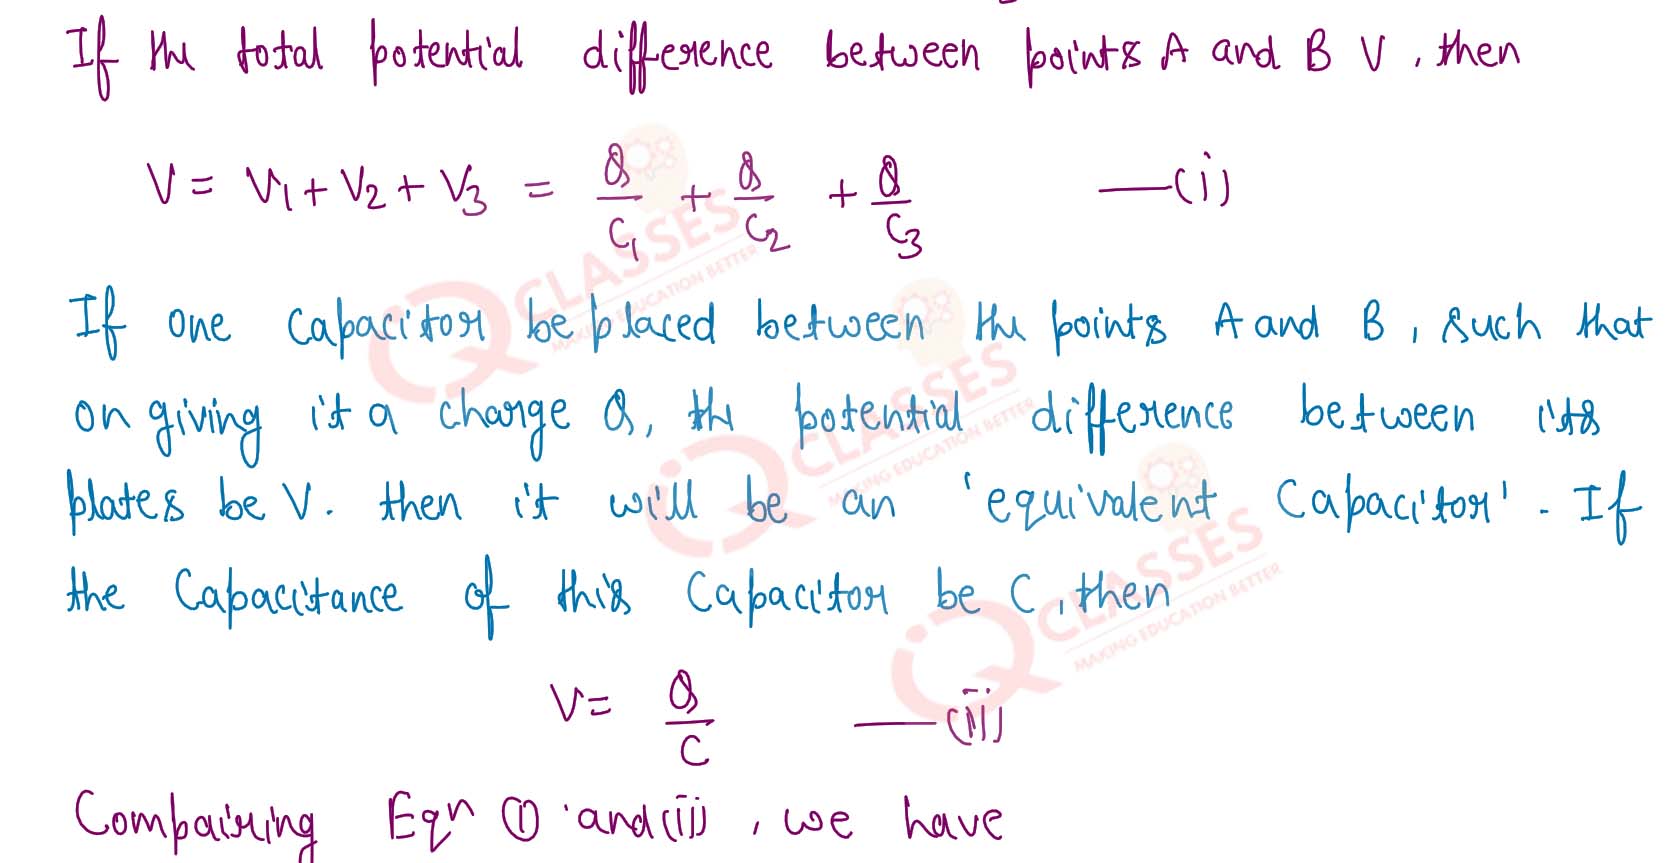 If the total potential difference between points A and B V, then
V = V₁ + V₂ + V₃ = Q/C₁ + Q/C₂ + Q/C₃ —(i)
If one capacitor be placed between the points A and B, such that
on giving it a charge Q, the potential difference between its
plates be V. then it will be an 'equivalent Capacitor'. If
the Capacitance of this Capacitor be C, then
V = Q/C —(ii)
Compairing Eqn (i) and (ii), we have
IQ CLASSES
MAKING EDUCATION BETTER
IQ CLASSES
MAKING EDUCATION BETTER
IQ CLASSES
MAKING EDUCATION BETTER